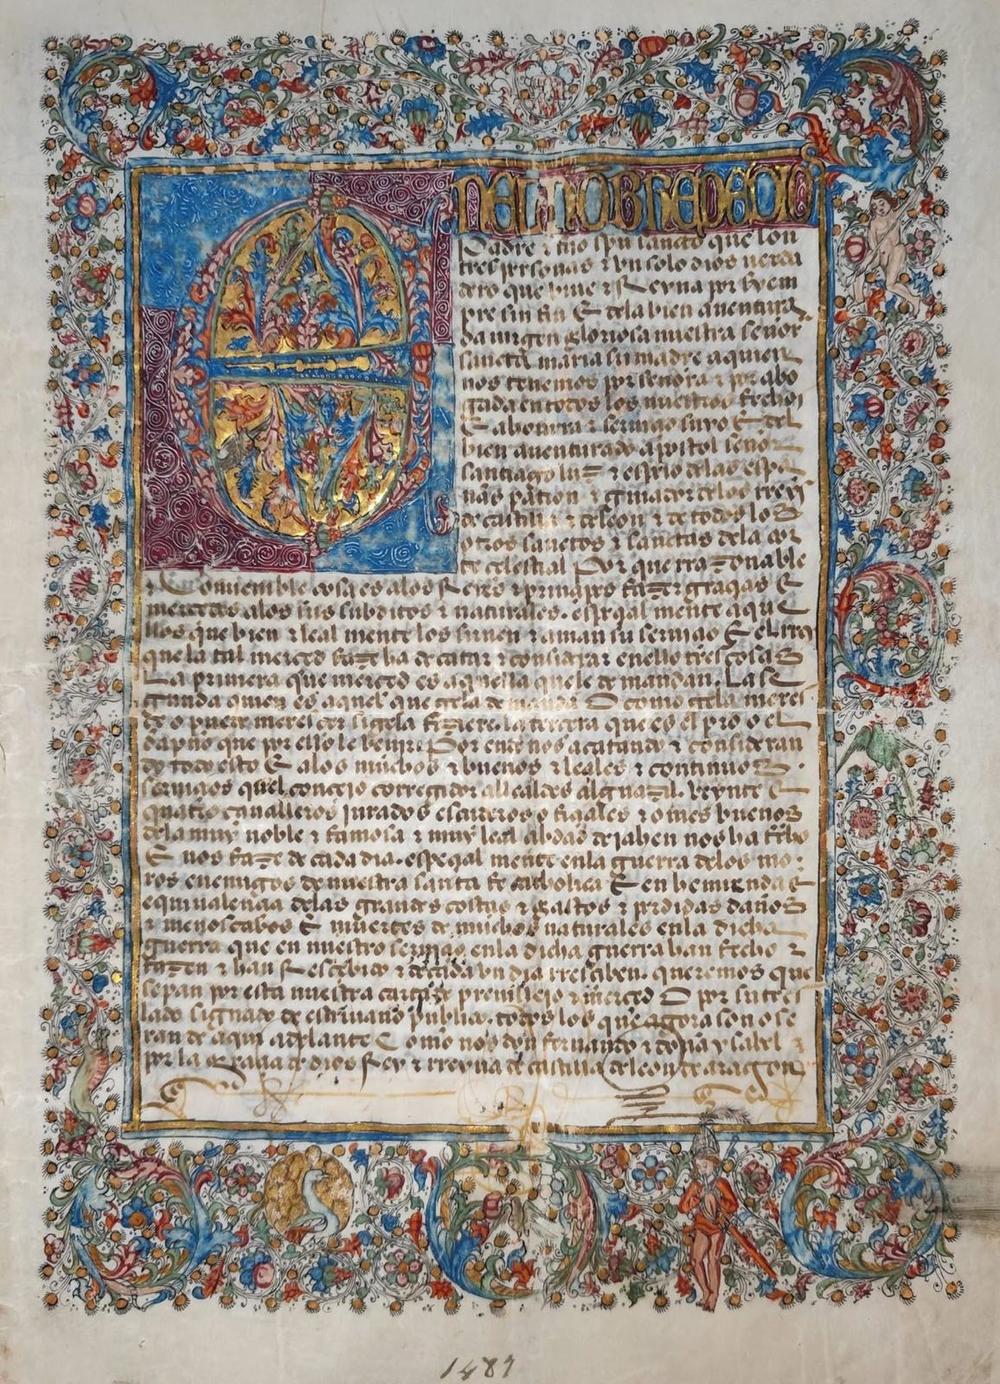 EN EL NOBRE DE DIOS
Padre & fijo & spu sancto que son
tres personas & un solo dios verda
dero que biue & Reyna por siem
pre sin fin E dela bien auentura
da uirgen gloriosa nuestra señor
sancta maria su madre a quien
nos tenemos por señora & por abo
gada en todos los nuestros fechos
E a honrra & seruiçio suyo E del
bien auenturado apostol señor
santiago luz & espejo delas espa
ñas patron & guiador delos reyes
de castilla & de leon & de todos los
otros sanctos & sanctas dela cor
te celestial Por que razonable
& Conuenible cosa es alos Reyes & prinçipes fazer graçias E
mercedes alos sus subditos & naturales espeçial mente aque
llos que bien & leal mente los siruen & aman su seruiçio E el rey
que la tal merced faze ha de catar & considerar en ello tres cosas
La primera que merced es aquella que le demandan. La se
gunda quien es aquel que gela demanda O como gela meres
çe o puede meresçer si gela fiziere. la terçera que es el pro o el
dapño que por ello le benir. Por ende nos acatando & consideran
do todo esto E alos muchos & buenos & leales & continuos
seruiçios quel conçejo corregidor alcaldes alguazil. veynte E
quatro caualleros jurados escuderos ofiçiales & omes buenos
dela muy noble & famosa & muy leal çibdad de jahen nos ha fecho
E nos faze de cada dia. espeçial mente enla guerra delos mo
ros enemigos de nuestra santa fe catholica E en hemienda E
equiualençia delas grandes costas & gastos & perdidas daños
& menoscabos E muertes de muchos naturales enla dicha
guerra que en nuestro seruiçio enla dicha guerra han fecho &
fazen & han Resçebido & de cada un dia resçiben. queremos que
sepan por esta nuestra carta de preuillejo & merced O por su tres
lado signado de escriuano publico. todos los que agora son o se
ran de aqui adelante Como nos don fernando & doña ysabel
por la graçia de dios Rey & rreyna de castilla de leon de aragon
1487